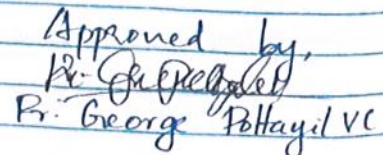 Approved by,
Fr. George Pottayil VC